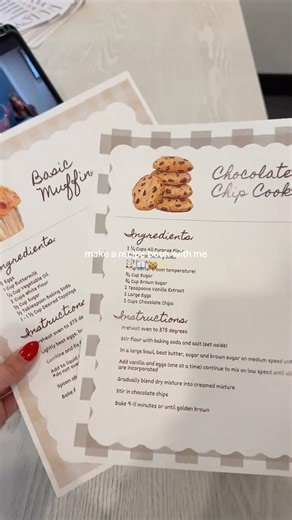 Basic
Muffin
Ingredients:
1 Egg
1 Cup Buttermilk
½ Cup Vegetable Oil
2 Cups White Flour
½ Cup Sugar
2 Tablespoon Baking Soda
1 - 1 ½ Cup Desired Toppings
Instructions:
Preheat oven to 375
Lightly beat egg,
Combine and
Add to liquid
do not over
Spoon
Bake
Chocolate
Chip Cook
Ingredients:
2 ¼ Cups All Purpose Flour
make a recipe book with me
room temperature)
¾ Cup Sugar
¾ Cup Brown Sugar
1 Teaspoons Vanilla Extract
2 Large Eggs
2 Cups Chocolate Chips
Instructions:
Preheat oven to 375 degrees
Stir flour with baking soda and salt (set aside)
In a large bowl, beat butter, sugar and brown sugar on medium speed until
Add vanilla and eggs (one at a time) continue to mix on low speed until all
are incorporated
Gradually blend dry mixture into creamed mixture
Stir in chocolate chips
Bake 9-11 minutes or until golden brown